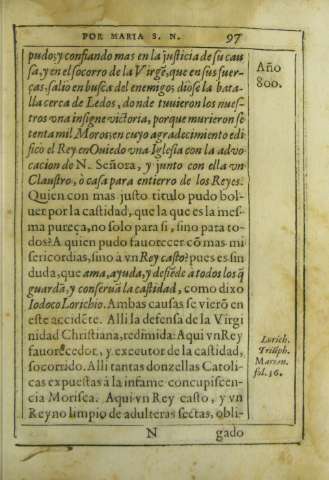 POR MARIA S. N. 97
pudo; y confiando mas en la justicia de su cau
sa, y en el socorro de la Virgē, que en sus fuer-
ças, salio en busca del enemigo; diose la bata-
lla cerca de Ledos, donde tuuieron los nues-
tros vna insigne victoria, porque murieron se
tenta mil Moros; en cuyo agradecimiento edi
ficò el Rey en Ouiedo vna Iglesia con la advo
cacion de N. Señora, y junto con ella vn
Claustro, ò casa para entierro de los Reyes.
Quien con mas justo titulo pudo bol-
uer por la castidad, que la que es la mes-
ma pureça, no solo para si, sino para to-
dos? A quien pudo fauorecer cō mas mi
sericordias, sino à vn Rey casto? pues es sin
duda, que ama, ayuda, y defiēde a todos los q̄
guardā, y conseruā la castidad, como dixo
Iodoco Lorichio. Ambas causas se vierō en
este accidēte. Alli la defensa de la Virgi
nidad Christiana, redimida: Aqui vn Rey
fauorecedor, y executor de la castidad,
socorrido. Alli tantas donzellas Catoli-
cas expuestas à la infame concupiscen-
cia Morisca. Aqui vn Rey casto, y vn
Reyno limpio de adulteras sectas, obli-
N gado
Año
800.
Lorich.
Triūph.
Marian.
fol. 36.